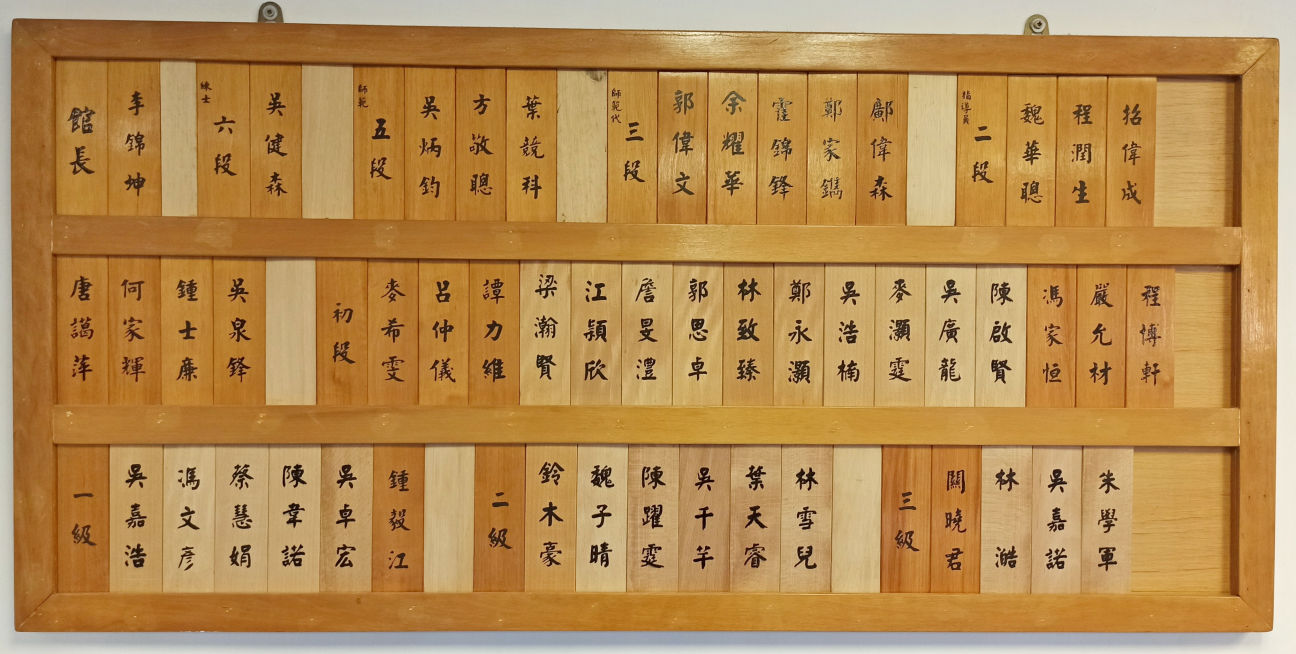 館長
李錦坤
練士
六段
吳健森
師範
五段
吳炳鈞
方敬聰
葉競科
師範代
三段
郭偉文
余耀華
霍錦鋒
鄭家鐫
鄺偉森
指導員
二段
魏華聰
程潤生
招偉成
唐藹萍
何家輝
鍾士廉
吳泉鋒
初段
麥希雯
呂仲儀
譚力維
梁瀚賢
江穎欣
詹旻澧
郭思卓
林致臻
鄭永灝
吳浩楠
麥灝霆
吳廣龍
陳啟賢
馮家恒
嚴允材
程博軒
一級
吳嘉浩
馮文彥
蔡慧娟
陳韋諾
吳卓宏
鍾毅江
二級
鈴木豪
魏子晴
陳躍霆
吳千芊
葉天睿
林雪兒
三級
關曉君
林澔
吳嘉諾
朱學軍